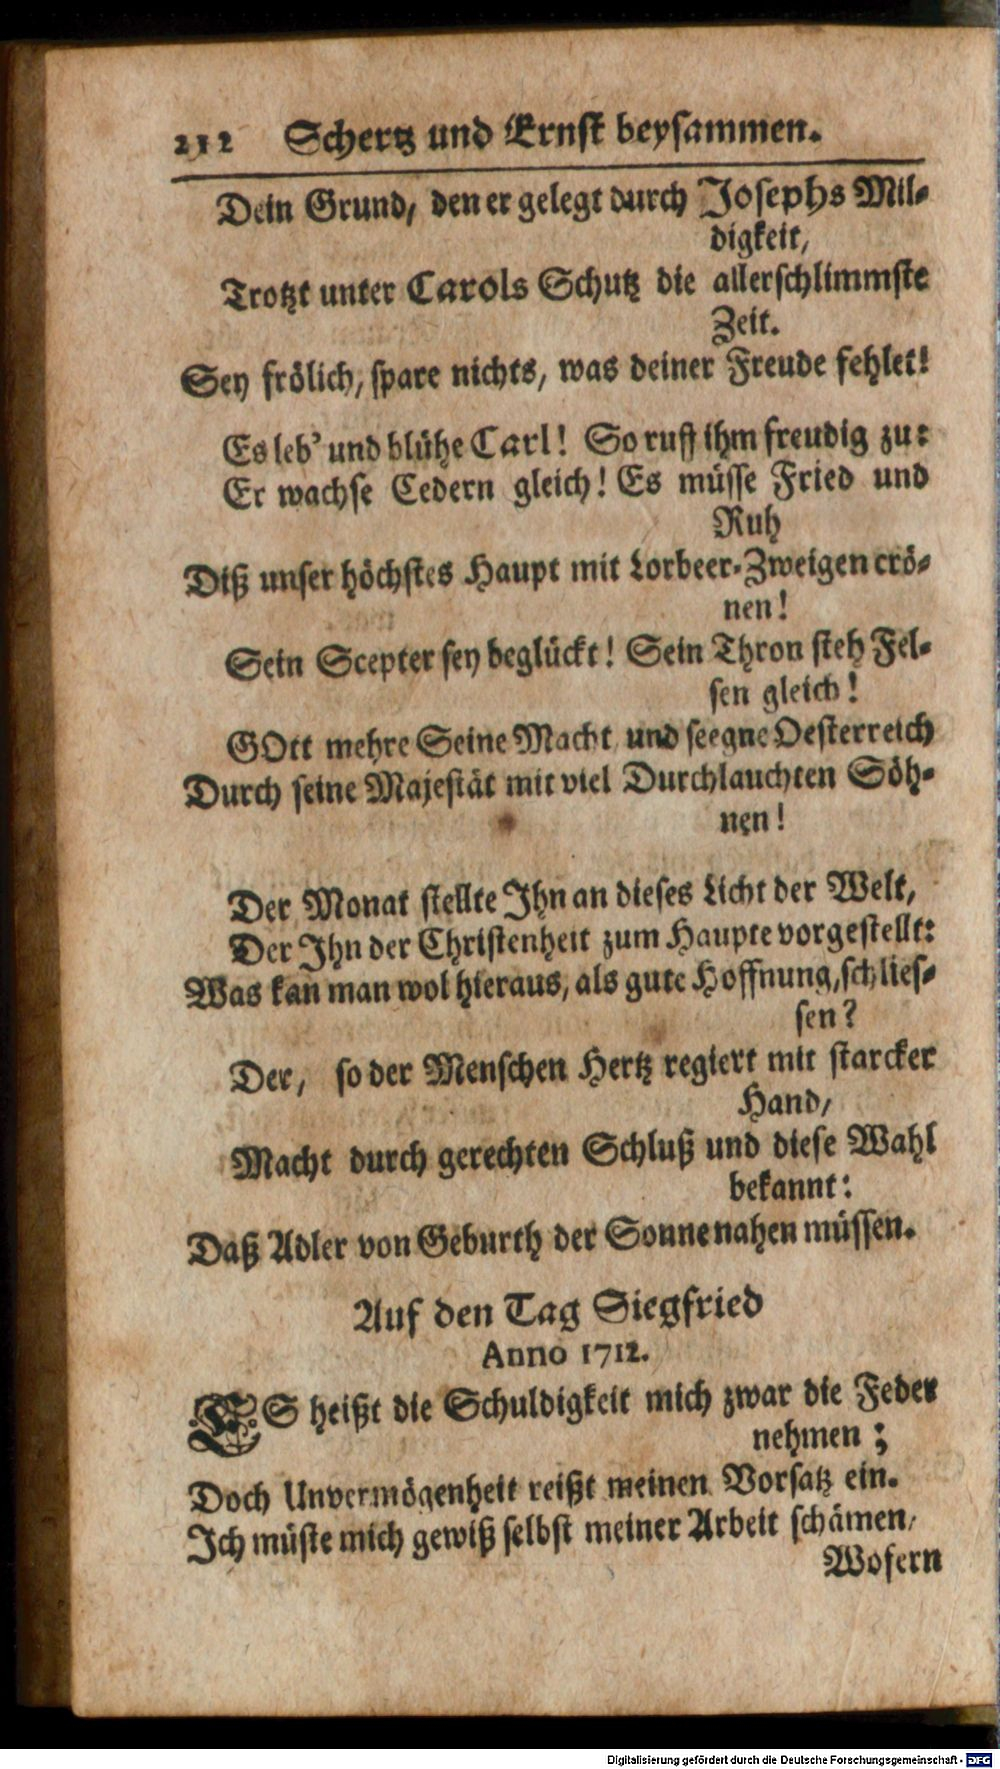 212 Schertz und Ernst beysammen.
Dein Grund, den er gelegt durch Josephs Mil-
digkeit,
Trotzt unter Carols Schutz die allerschlimmste
Zeit.
Sey frölich, spare nichts, was deiner Freude fehlet!
Es leb' und blühe Carl! So ruff ihm freudig zu:
Er wachse Cedern gleich! Es müsse Fried und
Ruh
Diß unser höchstes Haupt mit Lorbeer-Zweigen crö-
nen!
Sein Scepter sey beglückt! Sein Thron steh Fel-
sen gleich!
GOtt mehre Seine Macht und seegne Oesterreich
Durch seine Majestät mit viel Durchlauchten Söh-
nen!
Der Monat stellte Ihn an dieses Licht der Welt,
Der Ihn der Christenheit zum Haupte vorgestellt:
Was kan man wol hieraus, als gute Hoffnung, schlies-
sen?
Der, so der Menschen Hertz regiert mit starcker
Hand,
Macht durch gerechten Schluß und diese Wahl
bekannt:
Daß Adler von Geburth der Sonne nahen müssen.
Auf den Tag Siegfried
Anno 1712.
ES heißt die Schuldigkeit mich zwar die Feder
nehmen;
Doch Unvermögenheit reißt meinen Vorsatz ein.
Ich müste mich gewiß selbst meiner Arbeit schämen,
Wofern
Digitalisierung gefördert durch die Deutsche Forschungsgemeinschaft - DFG